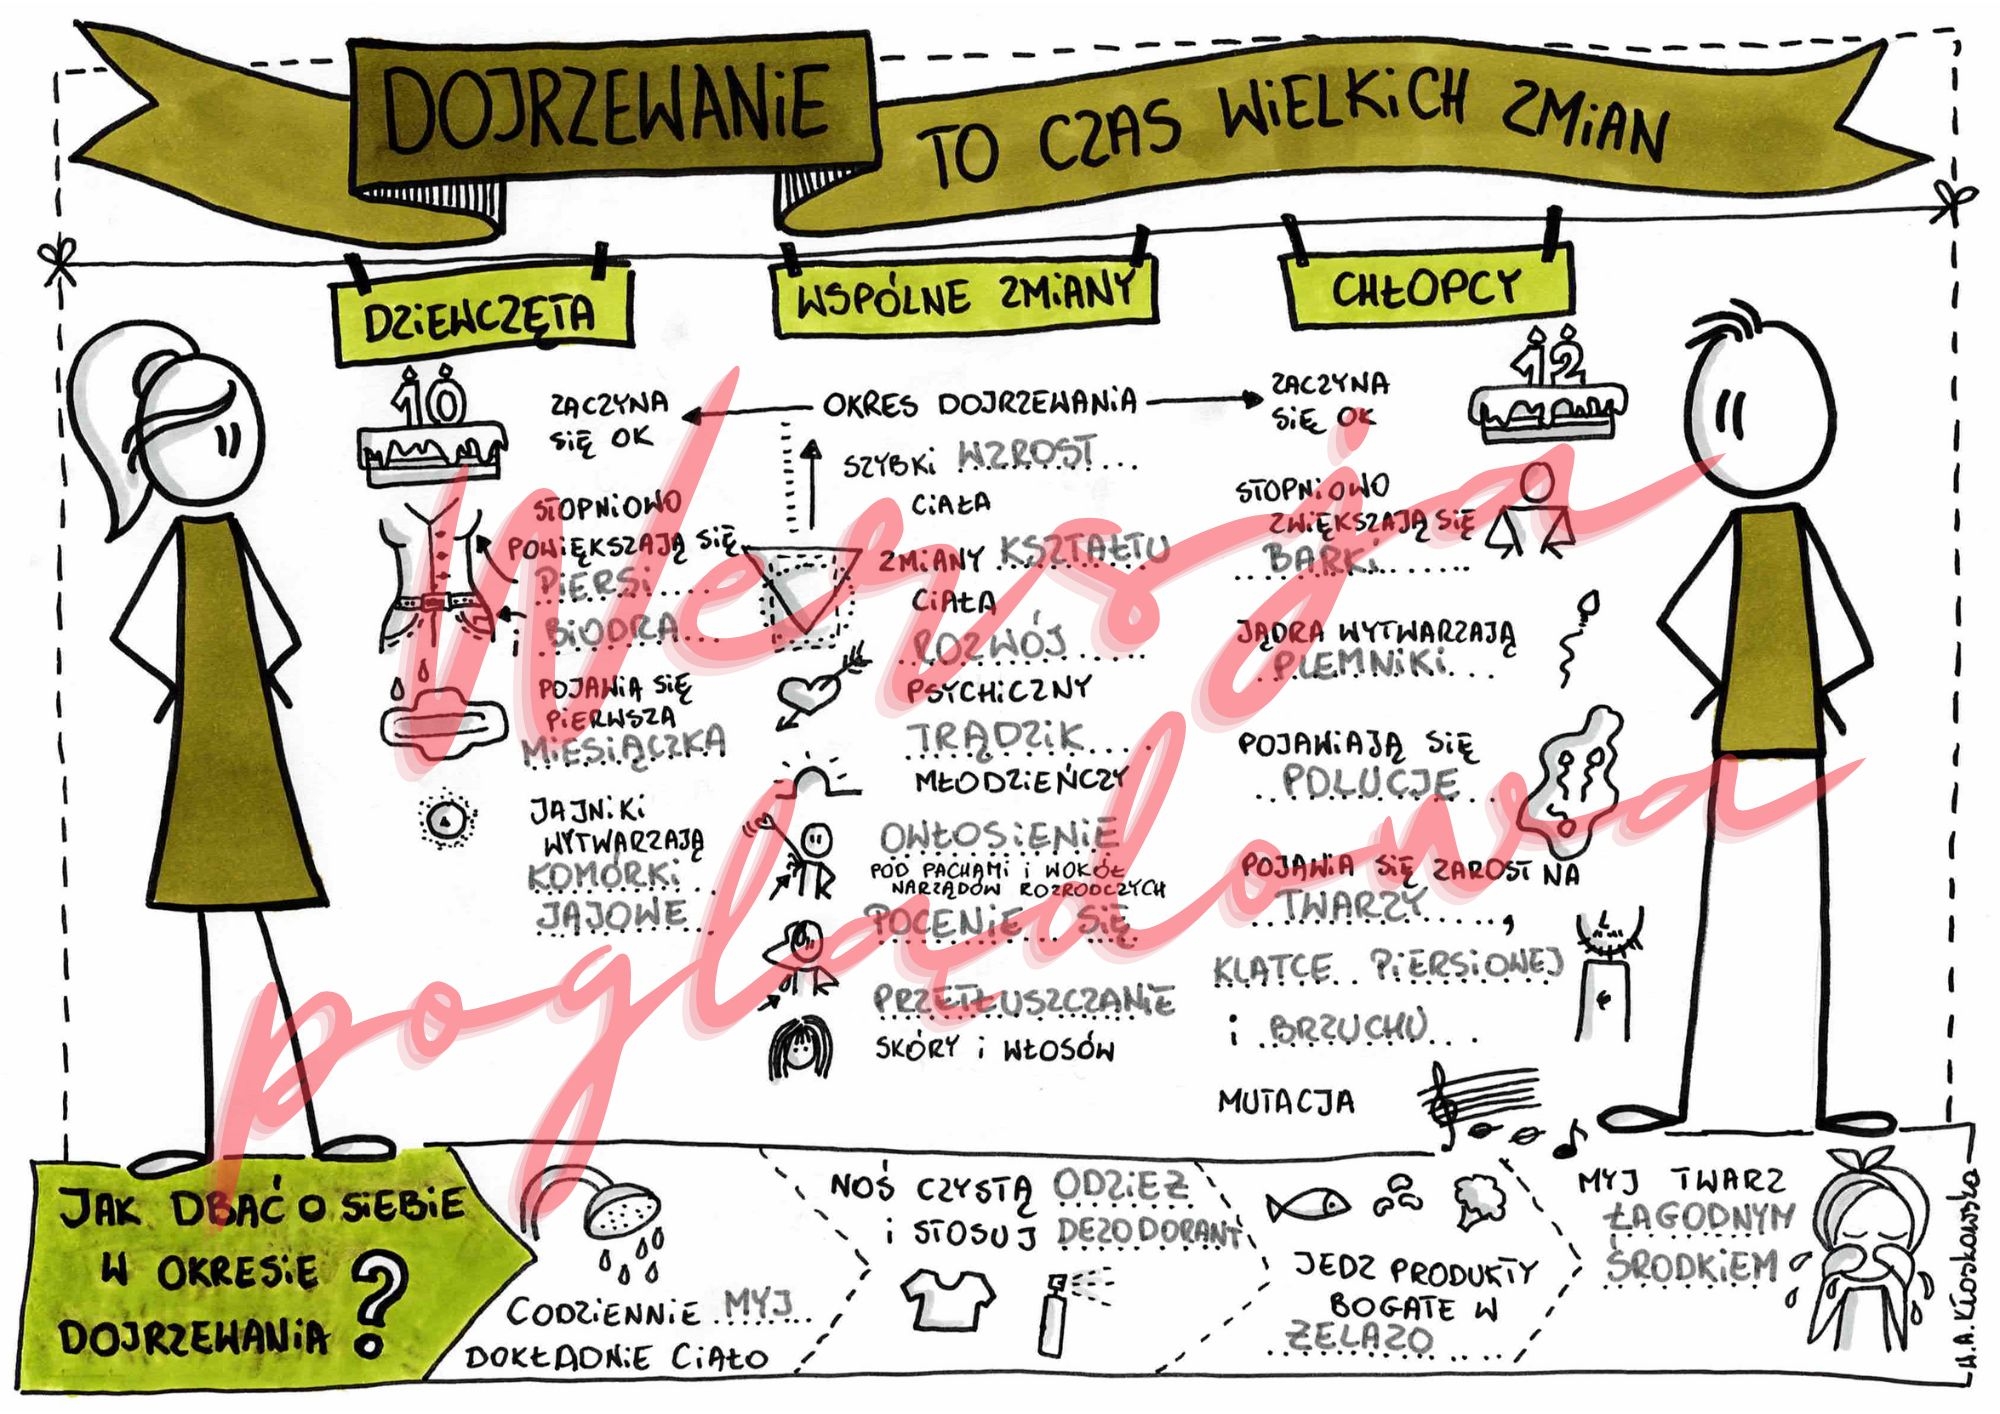 DOJRZEWANIE TO CZAS WIELKICH ZMIAN
DZIEWCZĘTA
10
ZACZYNA
SIĘ OK
STOPNIOWO
POWIĘKSZAJĄ SIĘ
PIERSI
i BIODRA
POJAWIA SIĘ
PIERWSZA
MIESIĄCZKA
JAJNIKI
WYTWARZAJĄ
KOMÓRKI
JAJOWE
WSPÓLNE ZMIANY
OKRES DOJRZEWANIA
SZYBKI WZROST
CIAŁA
ZMIANY KSZTAŁTU
CIAŁA
ROZWÓJ
PSYCHICZNY
TRĄDZIK
MŁODZIEŃCZY
OWŁOSIENIE
POD PACHAMI i WOKÓŁ
NARZĄDÓW ROZRODCZYCH
POCENIE SIĘ
PRZETŁUSZCZANIE
SKÓRY i WŁOSÓW
CHŁOPCY
12
ZACZYNA
SIĘ OK
STOPNIOWO
ZWIĘKSZAJĄ SIĘ
BARKI
JĄDRA WYTWARZAJĄ
PLEMNIKI
POJAWIAJĄ SIĘ
POLUCJE
POJAWIA SIĘ ZAROST NA
TWARZY,
KLATCE PIERSIOWEJ
i BRZUCHU
MUTACJA
JAK DBAĆ O SIEBIE
W OKRESIE
DOJRZEWANIA ?
CODZIENNIE MYJ
DOKŁADNIE CIAŁO
NOŚ CZYSTĄ ODZIEŻ
i STOSUJ DEZODORANT
JEDZ PRODUKTY
BOGATE W
ŻELAZO
MYJ TWARZ
ŁAGODNYM
ŚRODKIEM
M.A. Kłoskowska
Wersja
poglądowa